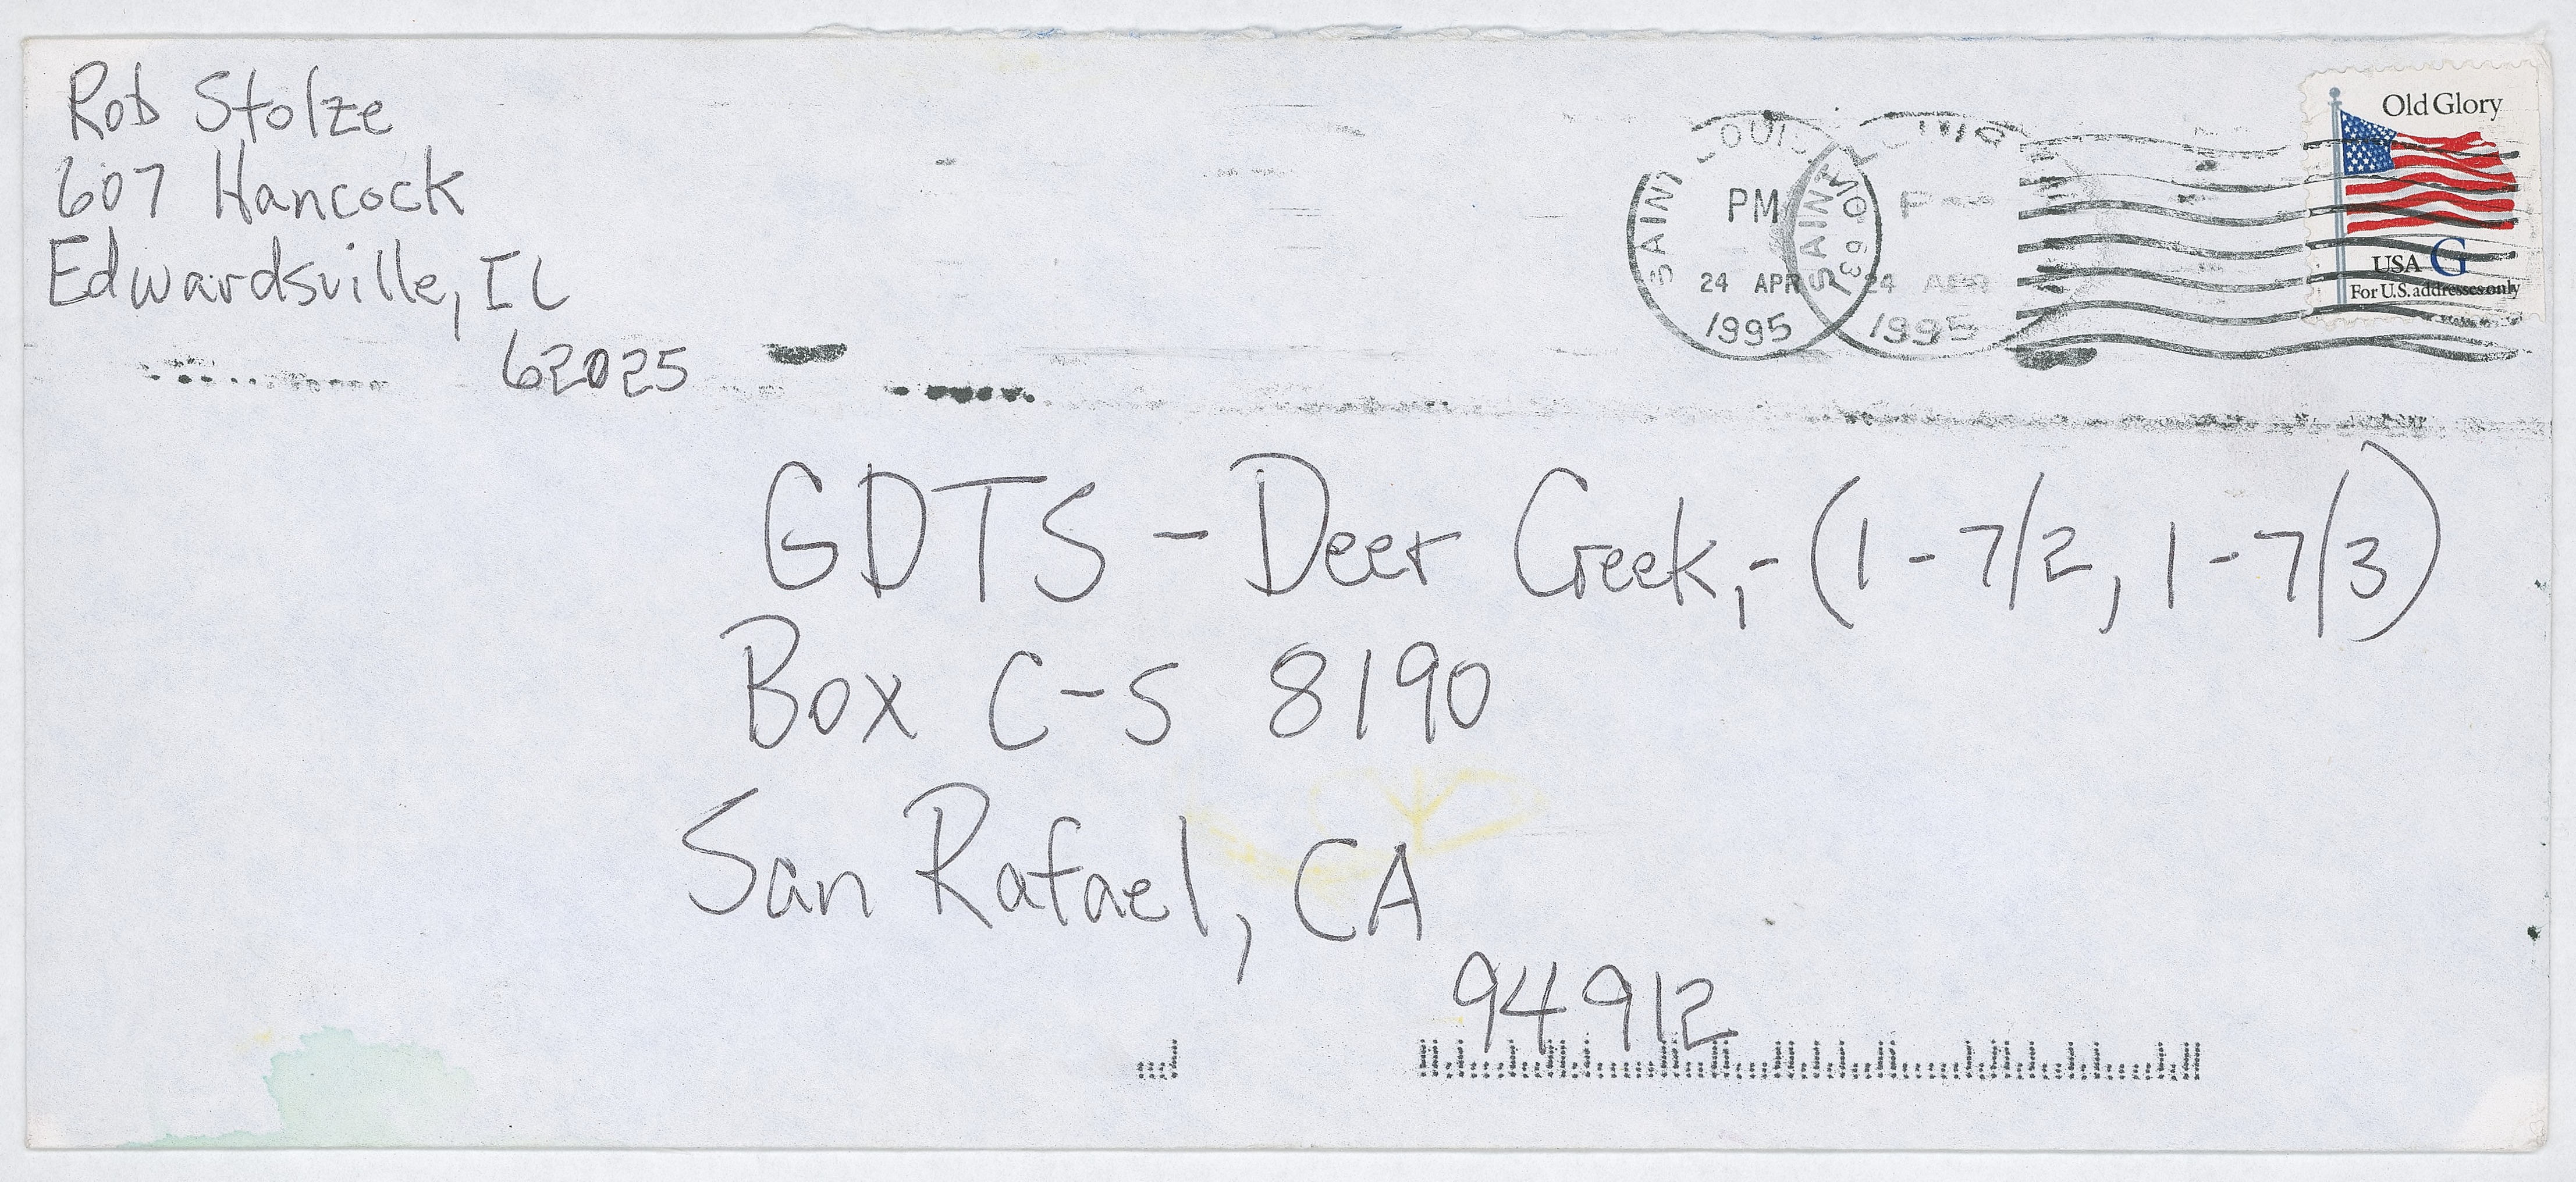 Rob Stolze
607 Hancock
Edwardsville, IL
62025
SAINT LOUIS MO 63
PM
24 APR
1995
SAINT
24 APR
1995
Old Glory
USA G
For U.S. addresses only
GDTS - Deer Creek, - (1 - 7/2, 1 - 7/3)
Box C-S 8190
San Rafael, CA
94912